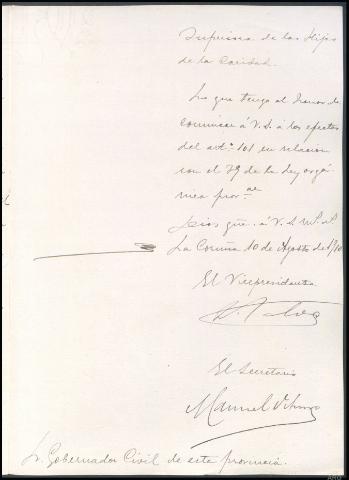 Superiora de las Hijas
de la Caridad.
Lo que tengo el honor de
comunicar á V.S. á los efectos
del artº 101 en relación
con el 79 de la Ley orgá-
nica provae
Dios gue. á V.S. ms. as.
La Coruña 10 de Agosto de
El Vicepresidente
El Secretario
Manuel
Sr. Gobernador Civil de esta provincia.